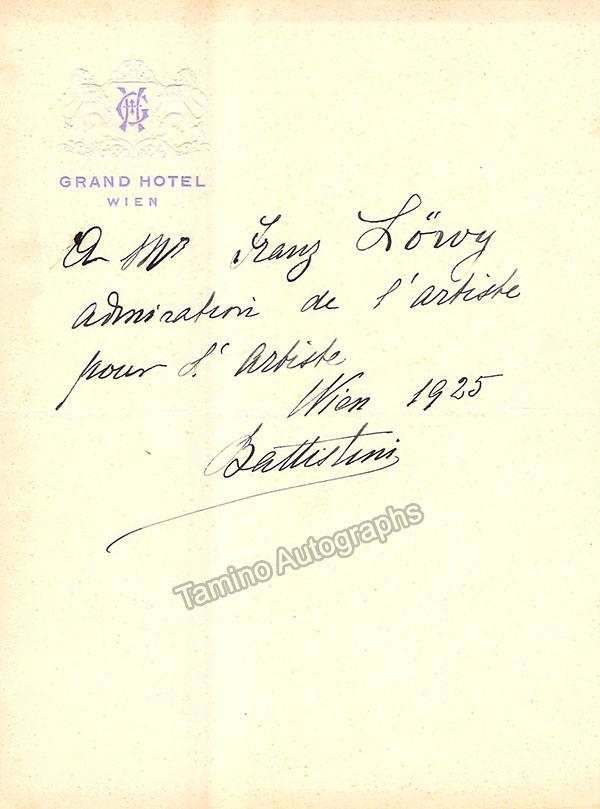 GH
GRAND HOTEL
WIEN
A Mr Franz Löwy
admiration de l'artiste
pour l'Artiste
Wien 1925
Battistini
Tamino Autographs